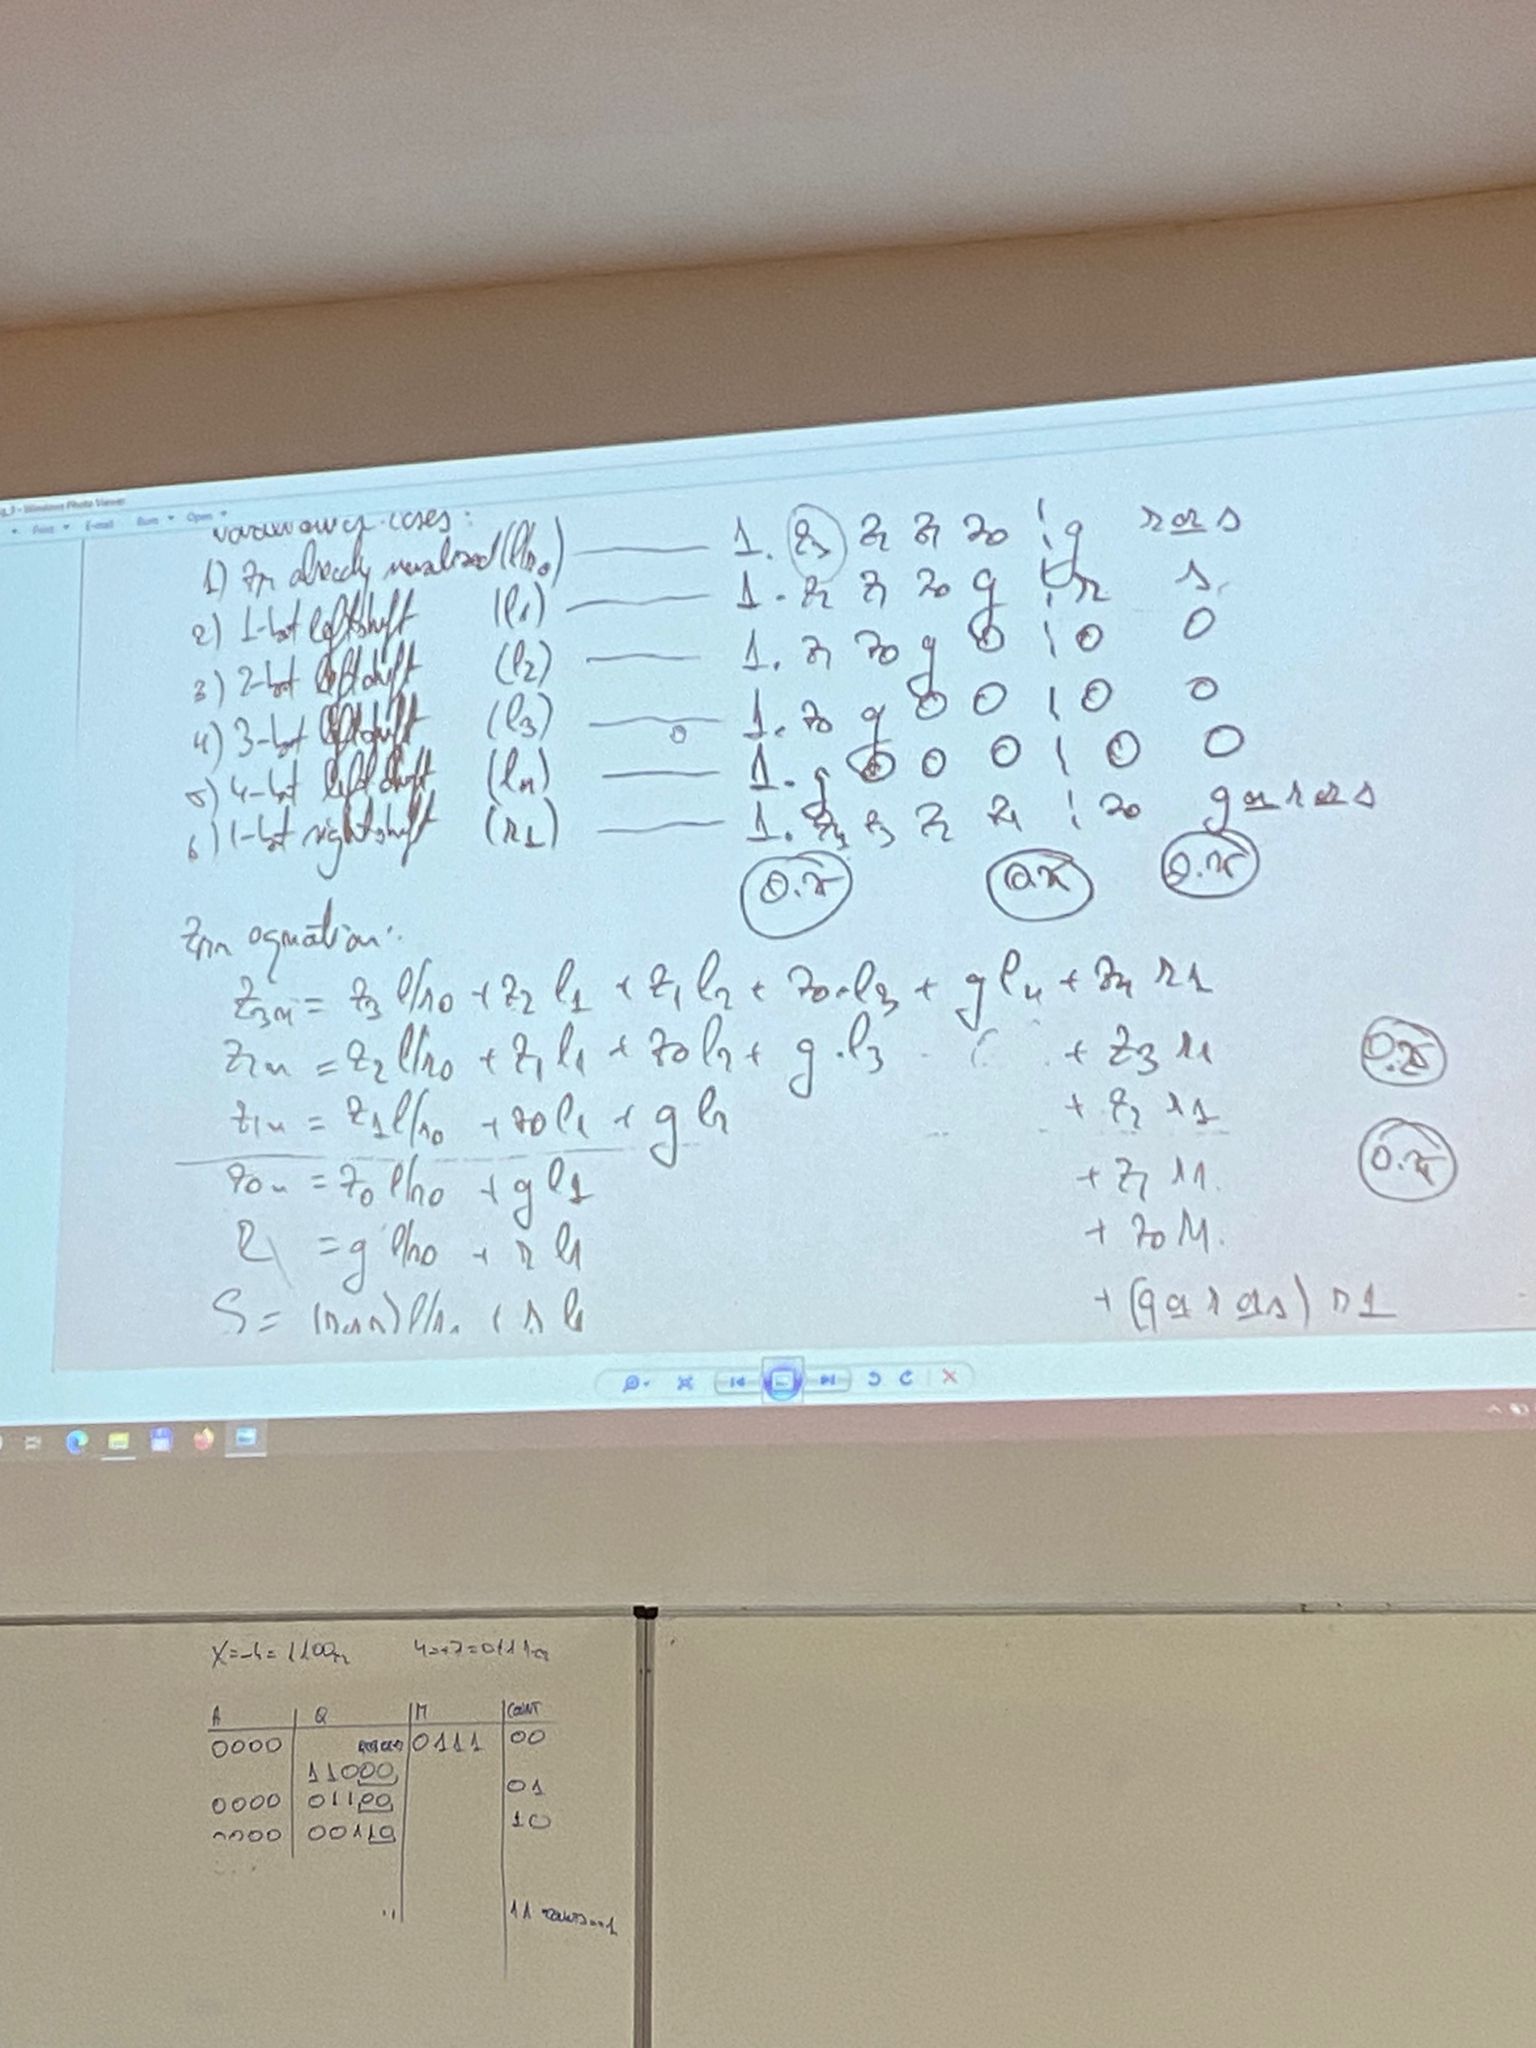 g_3 - Windows Photo Viewer
Print E-mail Burn Open
cases:
1) zn already normalized (l/r0) — 1. z3 z2 z1 z0 | g r or s
2) 1-bit left shift (l1) — 1. z2 z1 z0 g | r s
3) 2-bit left shift (l2) — 1. z1 z0 g 0 | 0 0
4) 3-bit left shift (l3) — 1. z0 g 0 0 | 0 0
5) 4-bit left shift (l4) — 1. g 0 0 0 | 0 0
6) 1-bit right shift (r1) — 1. z4 z3 z2 z1 | z0 g or r or s
0.5 0.5 0.5
equation:
z3n = z3 l/r0 + z2 l1 + z1 l2 + z0·l3 + g l4 + z4 r1
z2n = z2 l/r0 + z1 l1 + z0 l2 + g·l3 + z3 r1 0.5
z1n = z1 l/r0 + z0 l1 + g l2 + z2 r1
z0n = z0 l/r0 + g l1 + z1 r1 0.5
R = g l/r0 + r l1 + z0 r1
S = (r or s) l/r0 + s l1 + (g or r or s) r1
X=-4=1100
=+7=0111
A Q M COUNT
0000 0111 00
11000
01
0000 01100
10
0000 00110
11